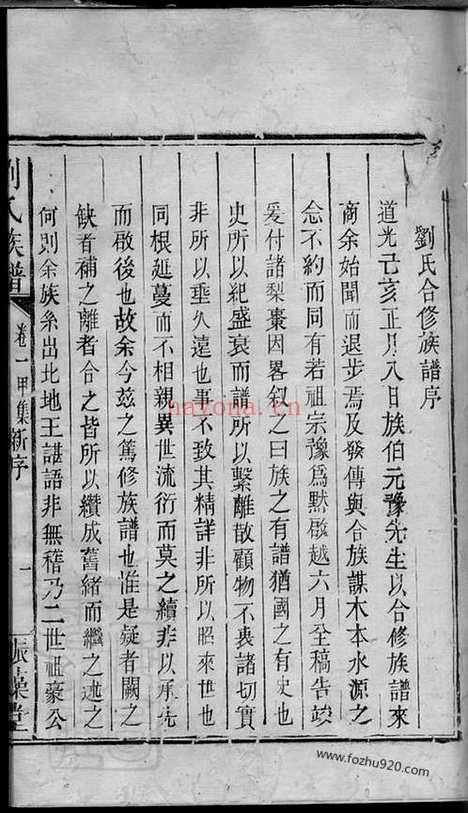 劉氏合修族譜序
道光己亥正月八日族伯元豫先生以合修族譜來
商余始聞而退步焉及發傳與合族謀木本水源之
念不約而同有若祖宗豫爲默啟越六月全稿告竣
爰付諸梨棗因畧敘之曰族之有譜猶國之有史也
史所以紀盛衰而譜所以繫離散顧物不衷諸切實
非所以垂久遠也事不致其精詳非所以昭來世也
同根延蔓而不相親異世流衍而莫之續非以承先
而啟後也故余今茲之篤修族譜也惟是疑者闕之
缺者補之離者合之皆所以纘成舊緒而繼之述之
何則余族系出北地王諶語非無稽乃二世祖蒙公
劉氏族譜 卷一甲集新序 一 振藻堂
nayona.cn
www.fozhu920.com